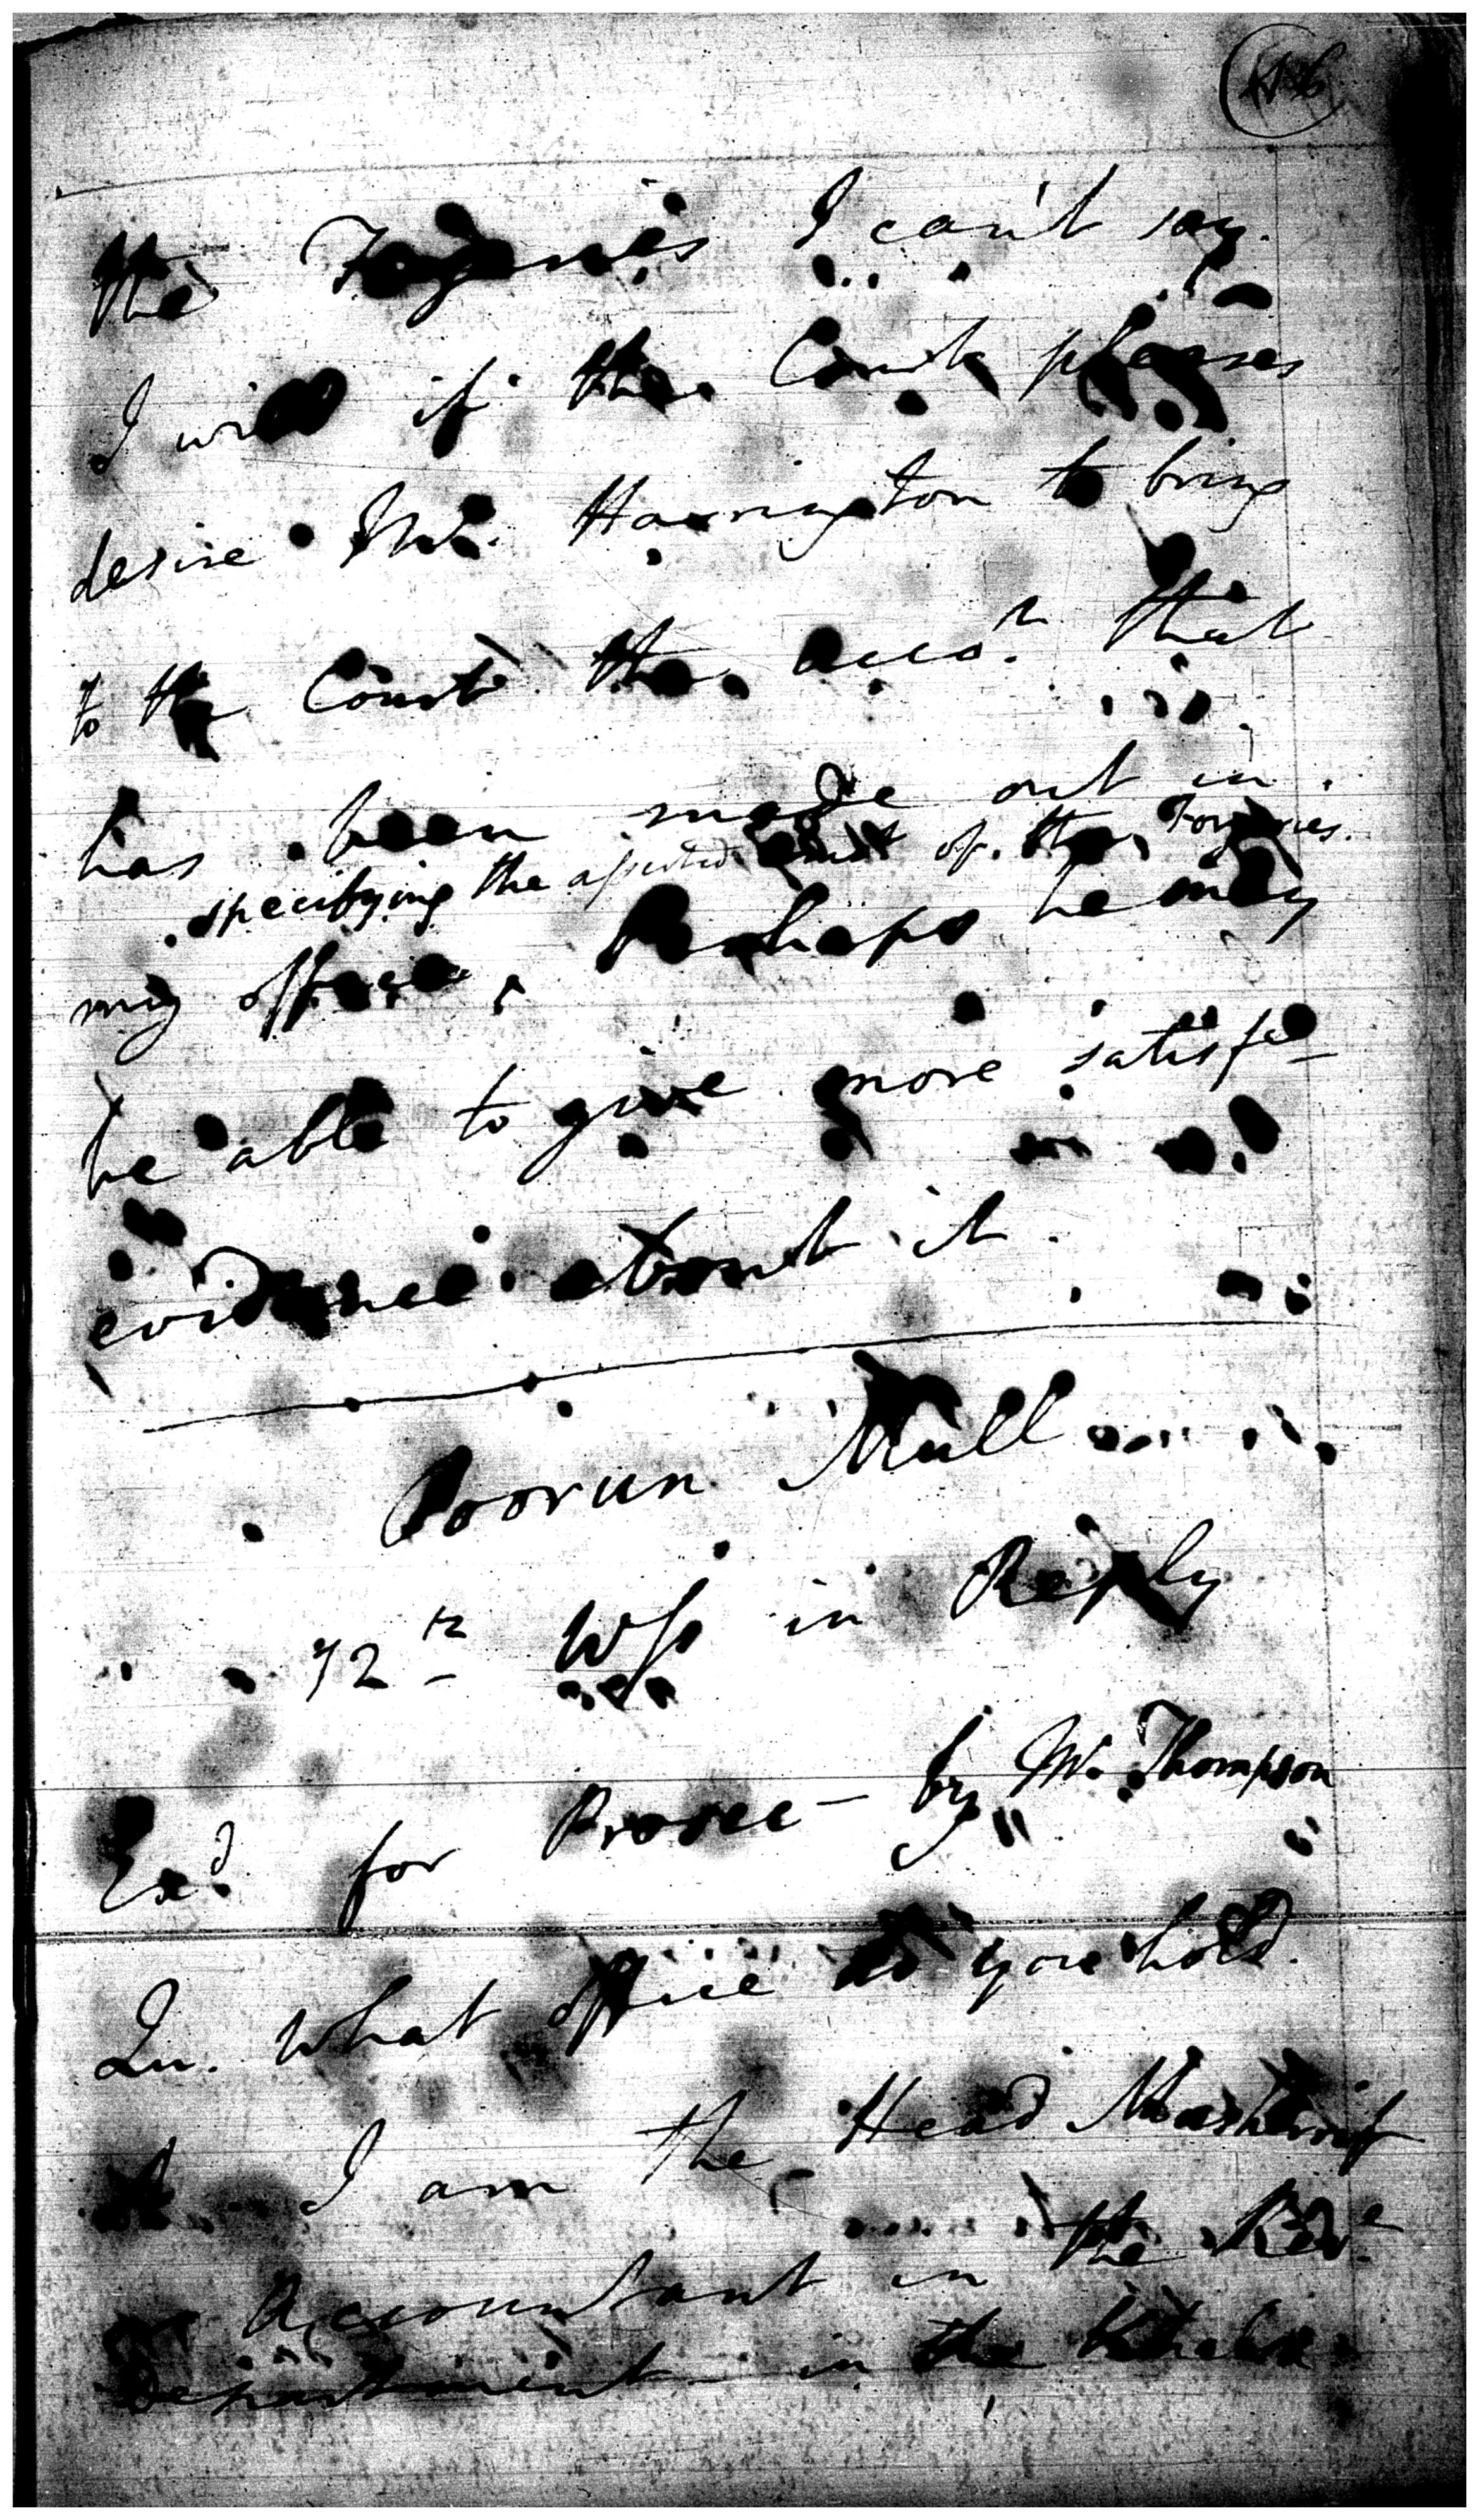 the Forgeries I can't say.
I will if the Court pleases
desire Mr. Harrington to bring
to the Court the acco.t that
has been made out in
specifying the amt of the Forgeries.
my office, Perhaps he may
be able to give more satisfe
evidence about it.
Poorun Mull
72th Wss in Reply
Exd for Prosec - by Mr. Thompson
Qu. What office do you hold.
A. I am the Head Mashrif
or Accountant in the Reve
Department in the Khalsa